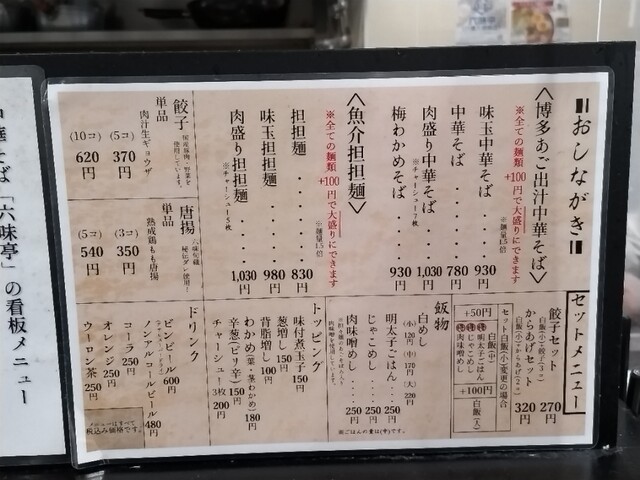 おしながき
〈博多あご出汁中華そば〉
※全ての麺類+100円で大盛りにできます
※麺量1.5倍
味玉中華そば・・・・930円
中華そば・・・・780円
肉盛り中華そば・・1,030円
※チャーシュー7枚
梅わかめそば・・・930円
〈魚介担担麺〉
※全ての麺類+100円で大盛りにできます
※麺量1.5倍
担担麺・・・・・830円
味玉担担麺・・・980円
肉盛り担担麺・・1,030円
※チャーシュー5枚
餃子
国産豚肉・野菜を使用しています。
単品
肉汁生ギョウザ
(5コ) 370円
(10コ) 620円
唐揚
六味旬蔵
秘伝ダレ使用!
単品
熟成鶏もも唐揚
(3コ) 350円
(5コ) 540円
セットメニュー
餃子セット 270円
白飯(小)+餃子(3コ)
からあげセット 320円
白飯(小)+からあげ(2コ)
セット白飯(小)変更の場合
+50円
白飯(中)
明太子ごはん
じゃこめし
肉味噌めし
+100円
白飯(大)
飯物
白めし
(小)120円 (中)170円 (大)220円
明太子ごはん 250円
じゃこめし・250円
肉味噌めし・250円
※ごはんの量は(中)です。
トッピング
味付煮玉子 150円
葱増し 150円
背脂増し 100円
わかめ(葉・茎わかめ) 180円
辛葱(ピリ辛) 150円
チャーシュー3枚 200円
ドリンク
ビンビール 600円
ノンアルコールビール 480円
コーラ 250円
オレンジ 250円
ウーロン茶 250円
メニューはすべて税込み価格です。
中華そば「六味亭」の看板メニュー